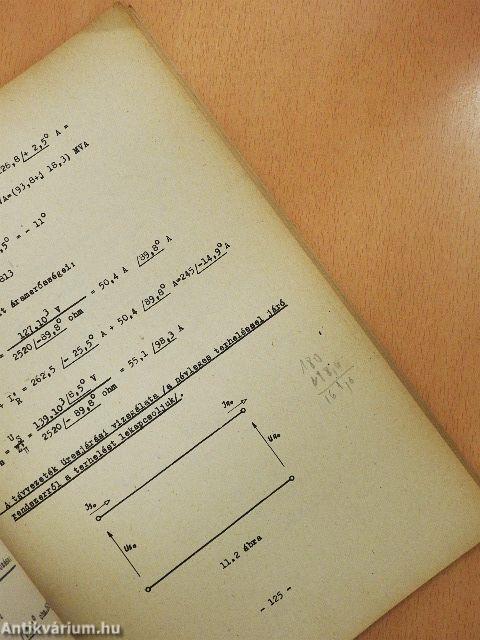 126,8/+ 2,5° A =
VA=(93,8+j 18,3) MVA
,5° = - 11°
813
tt áramerősségei:
= 127.10³ V / 2520/-89,8° ohm = 50,4 A /89,8° A
+ I'R = 262,5 /- 25,5° A + 50,4 /89,8° A=245/-14,9° A
= 139.10³/8,5° V / 2520/- 89,8° ohm = 55,1 /98,3 A
A távvezeték üresjárási vizsgálata /a névleges terheléssel járó
rendszerről a terhelést lekapcsoljuk/.
180
Us₀
UR₀
11.2 ábra
- 125 -
Antikvárium.hu